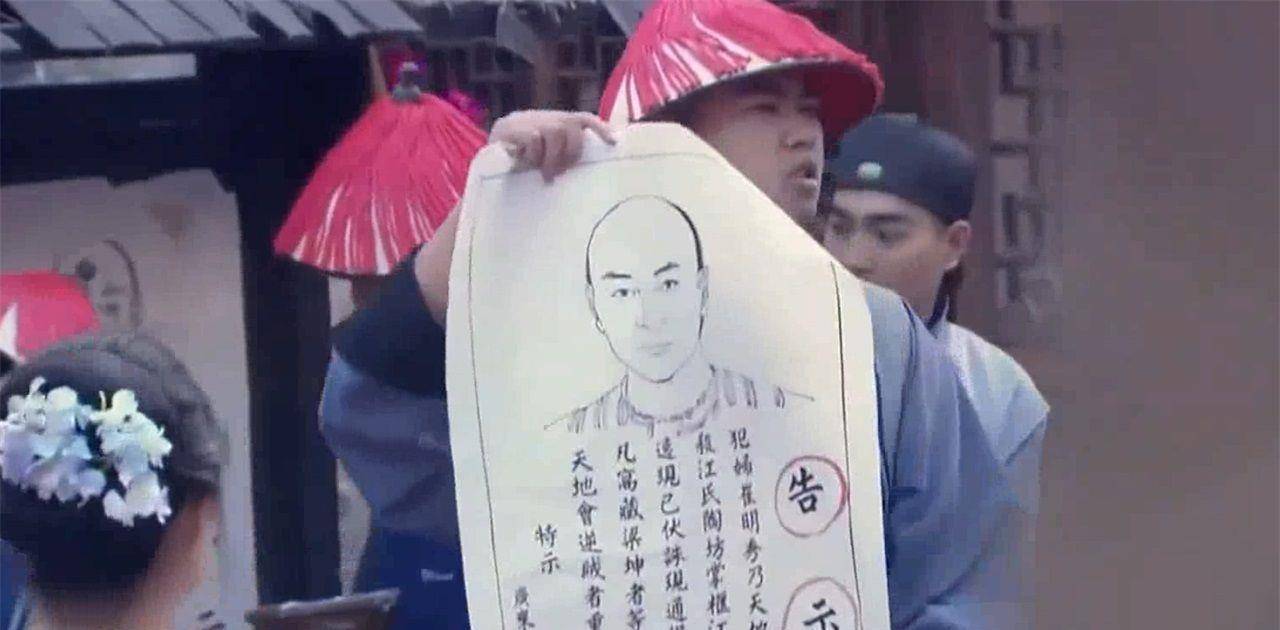 告示
犯婦崔明秀乃天地
殺江氏陶坊掌櫃江
遠現已伏誅現通
凡窩藏梁坤者等
天地會逆賊者重
特示
廣東